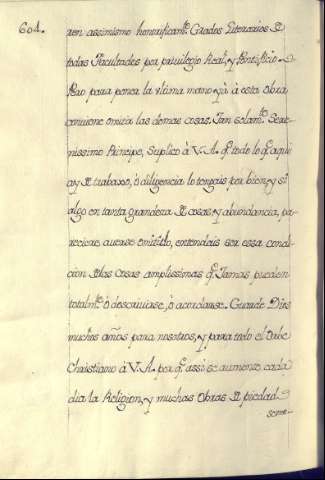 604.
ren assimismo honrrificam.te Grados Literarios D
todas Facultades por privilegio Real, y Pontificio.
Pero para poner la vltima mano ya à esta Obra
conviene omitir las demas cosas. Tan solam.te Sere-
nissimo Principe, suplico à V.A. q.e todo lo q.e aqui
ay D trabaxo, ò diligencia lo tengais por bien, y si
algo en tanta grandeza D cosas, y abundancia, pa-
reciere averse omitido, entendais ser essa condi-
ción Delas cosas amplissimas q.e Jamas pueden
totalm.te ò descrivirse, ò acordarse. Guarde Dios
muchos años para nosotros, y para todo el Orbe
Christiano à V.A. por q.e assi se aumente cada
dia la Religion, y muchas Obras D piedad
seme-